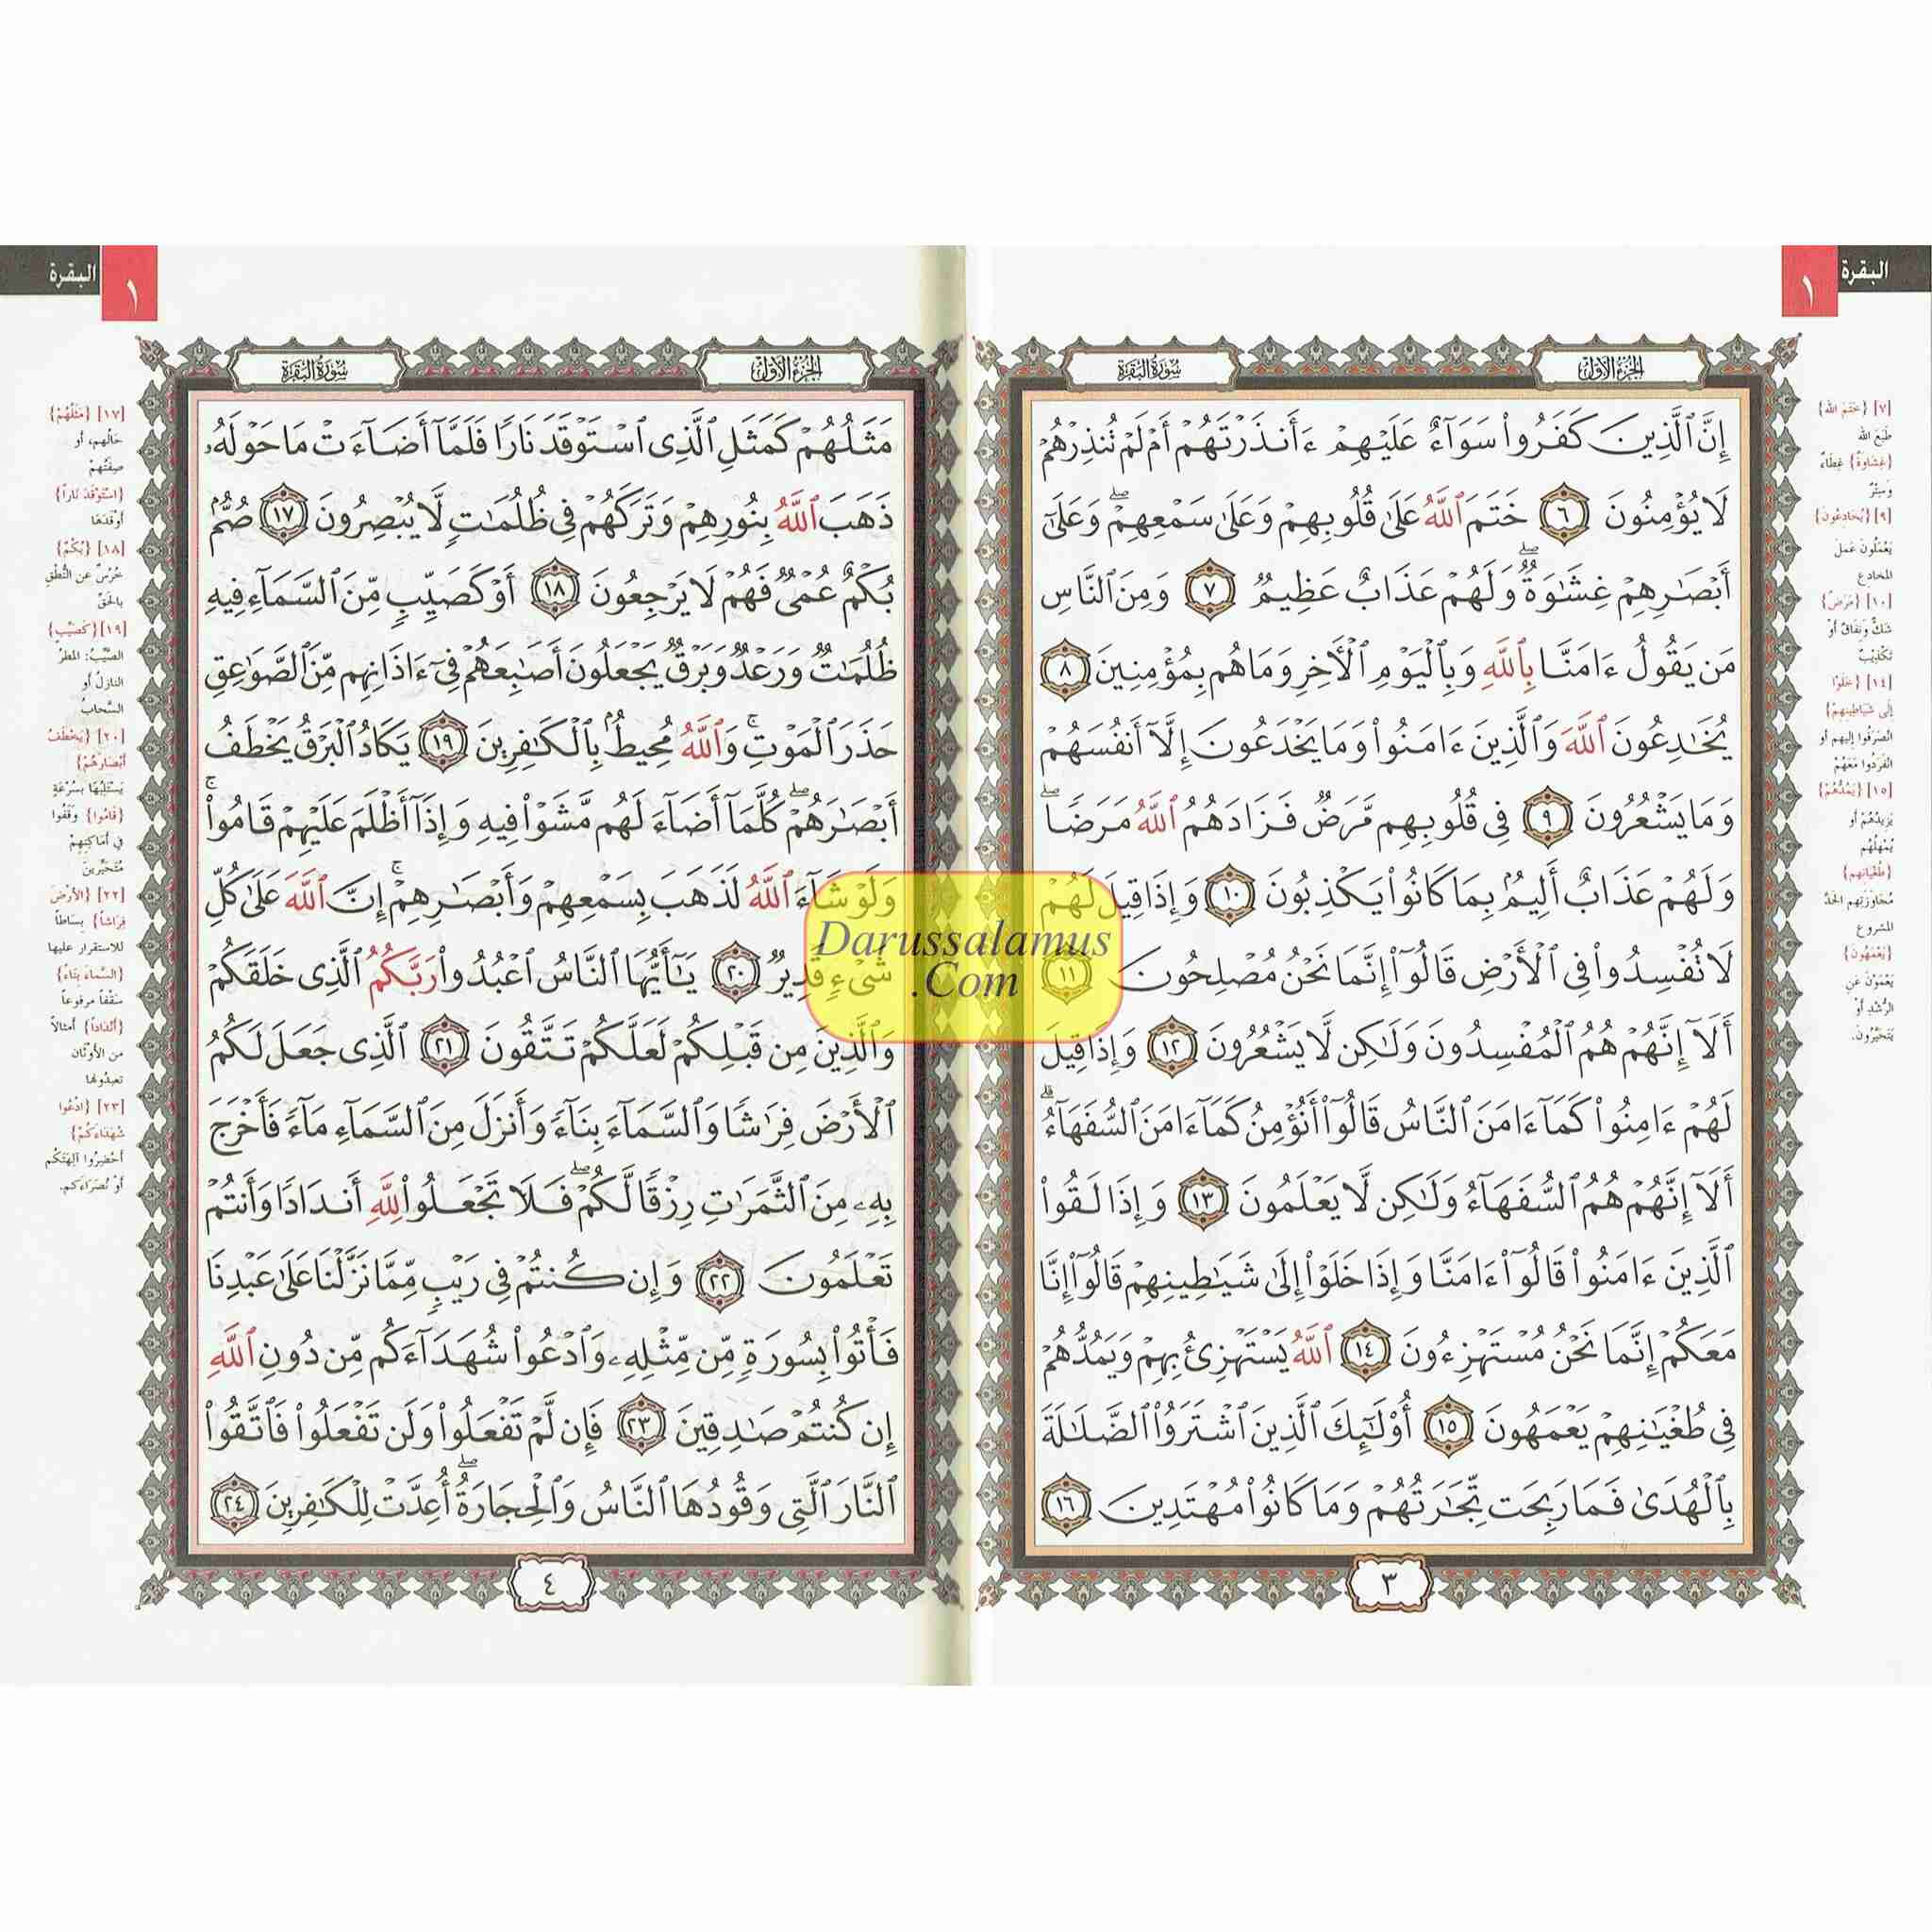 البقرة
١
الجزء الأول
سورة البقرة
إِنَّ ٱلَّذِينَ كَفَرُوا۟ سَوَآءٌ عَلَيْهِمْ ءَأَنذَرْتَهُمْ أَمْ لَمْ تُنذِرْهُمْ
لَا يُؤْمِنُونَ ٦ خَتَمَ ٱللَّهُ عَلَىٰ قُلُوبِهِمْ وَعَلَىٰ سَمْعِهِمْ ۖ وَعَلَىٰٓ
أَبْصَـٰرِهِمْ غِشَـٰوَةٌ ۖ وَلَهُمْ عَذَابٌ عَظِيمٌ ٧ وَمِنَ ٱلنَّاسِ
مَن يَقُولُ ءَامَنَّا بِٱللَّهِ وَبِٱلْيَوْمِ ٱلْـَٔاخِرِ وَمَا هُم بِمُؤْمِنِينَ ٨
يُخَـٰدِعُونَ ٱللَّهَ وَٱلَّذِينَ ءَامَنُوا۟ وَمَا يَخْدَعُونَ إِلَّآ أَنفُسَهُمْ
وَمَا يَشْعُرُونَ ٩ فِى قُلُوبِهِم مَّرَضٌ فَزَادَهُمُ ٱللَّهُ مَرَضًا ۖ
وَلَهُمْ عَذَابٌ أَلِيمٌۢ بِمَا كَانُوا۟ يَكْذِبُونَ ١٠ وَإِذَا قِيلَ لَهُمْ
لَا تُفْسِدُوا۟ فِى ٱلْأَرْضِ قَالُوٓا۟ إِنَّمَا نَحْنُ مُصْلِحُونَ ١١
أَلَآ إِنَّهُمْ هُمُ ٱلْمُفْسِدُونَ وَلَـٰكِن لَّا يَشْعُرُونَ ١٢ وَإِذَا قِيلَ
لَهُمْ ءَامِنُوا۟ كَمَآ ءَامَنَ ٱلنَّاسُ قَالُوٓا۟ أَنُؤْمِنُ كَمَآ ءَامَنَ ٱلسُّفَهَآءُ ۗ
أَلَآ إِنَّهُمْ هُمُ ٱلسُّفَهَآءُ وَلَـٰكِن لَّا يَعْلَمُونَ ١٣ وَإِذَا لَقُوا۟
ٱلَّذِينَ ءَامَنُوا۟ قَالُوٓا۟ ءَامَنَّا وَإِذَا خَلَوْا۟ إِلَىٰ شَيَـٰطِينِهِمْ قَالُوٓا۟ إِنَّا
مَعَكُمْ إِنَّمَا نَحْنُ مُسْتَهْزِءُونَ ١٤ ٱللَّهُ يَسْتَهْزِئُ بِهِمْ وَيَمُدُّهُمْ
فِى طُغْيَـٰنِهِمْ يَعْمَهُونَ ١٥ أُو۟لَـٰٓئِكَ ٱلَّذِينَ ٱشْتَرَوُا۟ ٱلضَّلَـٰلَةَ
بِٱلْهُدَىٰ فَمَا رَبِحَت تِّجَـٰرَتُهُمْ وَمَا كَانُوا۟ مُهْتَدِينَ ١٦
٣
[٧] {خَتَمَ الله}
طَبَعَ الله
{غِشَاوَةٌ} غِطَاءٌ
وَسِتْرٌ
[٩] {يُخَادِعُونَ}
يَعْمَلُونَ عَمَلَ
المخادِعِ
[١٠] {مَرَضٌ}
شَكٌّ وَنِفَاقٌ أَوْ
تَكْذِيبٌ
[١٤] {خَلَوْا
إِلَى شَيَاطِينِهِمْ}
انْصَرَفُوا إليهم أو
انْفَرَدُوا مَعَهُمْ
[١٥] {يَمُدُّهُمْ}
يَزِيدُهُمْ أو
يُمْهِلُهُم
{طُغْيَانِهِم}
مُجَاوَزَتِهِم الحَدَّ
المشروع
{يَعْمَهُونَ}
يَعْمَوْنَ عن
الرُّشْدِ أَوْ
يَتَحَيَّرُونَ.
البقرة
١
الجزء الأول
سورة البقرة
مَثَلُهُمْ كَمَثَلِ ٱلَّذِى ٱسْتَوْقَدَ نَارًا فَلَمَّآ أَضَآءَتْ مَا حَوْلَهُۥ
ذَهَبَ ٱللَّهُ بِنُورِهِمْ وَتَرَكَهُمْ فِى ظُلُمَـٰتٍ لَّا يُبْصِرُونَ ١٧ صُمٌّۢ
بُكْمٌ عُمْىٌ فَهُمْ لَا يَرْجِعُونَ ١٨ أَوْ كَصَيِّبٍ مِّنَ ٱلسَّمَآءِ فِيهِ
ظُلُمَـٰتٌ وَرَعْدٌ وَبَرْقٌ يَجْعَلُونَ أَصَـٰبِعَهُمْ فِىٓ ءَاذَانِهِم مِّنَ ٱلصَّوَٰعِقِ
حَذَرَ ٱلْمَوْتِ ۚ وَٱللَّهُ مُحِيطٌۢ بِٱلْكَـٰفِرِينَ ١٩ يَكَادُ ٱلْبَرْقُ يَخْطَفُ
أَبْصَـٰرَهُمْ ۖ كُلَّمَآ أَضَآءَ لَهُم مَّشَوْا۟ فِيهِ وَإِذَآ أَظْلَمَ عَلَيْهِمْ قَامُوا۟ ۚ
وَلَوْ شَآءَ ٱللَّهُ لَذَهَبَ بِسَمْعِهِمْ وَأَبْصَـٰرِهِمْ ۚ إِنَّ ٱللَّهَ عَلَىٰ كُلِّ
شَىْءٍ قَدِيرٌ ٢٠ يَـٰٓأَيُّهَا ٱلنَّاسُ ٱعْبُدُوا۟ رَبَّكُمُ ٱلَّذِى خَلَقَكُمْ
وَٱلَّذِينَ مِن قَبْلِكُمْ لَعَلَّكُمْ تَتَّقُونَ ٢١ ٱلَّذِى جَعَلَ لَكُمُ
ٱلْأَرْضَ فِرَٰشًا وَٱلسَّمَآءَ بِنَآءً وَأَنزَلَ مِنَ ٱلسَّمَآءِ مَآءً فَأَخْرَجَ
بِهِۦ مِنَ ٱلثَّمَرَٰتِ رِزْقًا لَّكُمْ ۖ فَلَا تَجْعَلُوا۟ لِلَّهِ أَندَادًا وَأَنتُمْ
تَعْلَمُونَ ٢٢ وَإِن كُنتُمْ فِى رَيْبٍ مِّمَّا نَزَّلْنَا عَلَىٰ عَبْدِنَا
فَأْتُوا۟ بِسُورَةٍ مِّن مِّثْلِهِۦ وَٱدْعُوا۟ شُهَدَآءَكُم مِّن دُونِ ٱللَّهِ
إِن كُنتُمْ صَـٰدِقِينَ ٢٣ فَإِن لَّمْ تَفْعَلُوا۟ وَلَن تَفْعَلُوا۟ فَٱتَّقُوا۟
ٱلنَّارَ ٱلَّتِى وَقُودُهَا ٱلنَّاسُ وَٱلْحِجَارَةُ ۖ أُعِدَّتْ لِلْكَـٰفِرِينَ ٢٤
٤
[١٧] {مَثَلُهُمْ}
حَالُهم، أو
صِفَتُهمْ
{اسْتَوْقَدَ نَاراً}
أَوْقَدَهَا
[١٨] {بُكْمٌ}
خُرْسٌ عن النُّطْقِ
بالحَقِّ
[١٩] {كَصَيِّبٍ}
الصَّيِّبُ: المطرُ
النازِلُ أو
السَّحابُ
[٢٠] {يَخْطَفُ
أَبْصَارَهُمْ}
يَسْتَلِبُهَا بِسُرْعَةٍ
{قَامُوا} وَقَفُوا
في أَمَاكِنِهِمْ
مُتَحَيِّرينَ
[٢٢] {الأرْضَ
فِرَاشاً} بِسَاطاً
للاستقرار عليها
{السَّمَاءَ بِنَاءً}
سَقْفاً مرفوعاً
{أَنْدَاداً} أمثالاً
من الأَوْثَان
تعبدُونها
[٢٣] {ادْعُوا
شُهَدَاءَكُمْ}
أَحْضِرُوا آلِهَتَكُم
أَوْ نُصَرَاءَكم.
Darussalamus
.Com